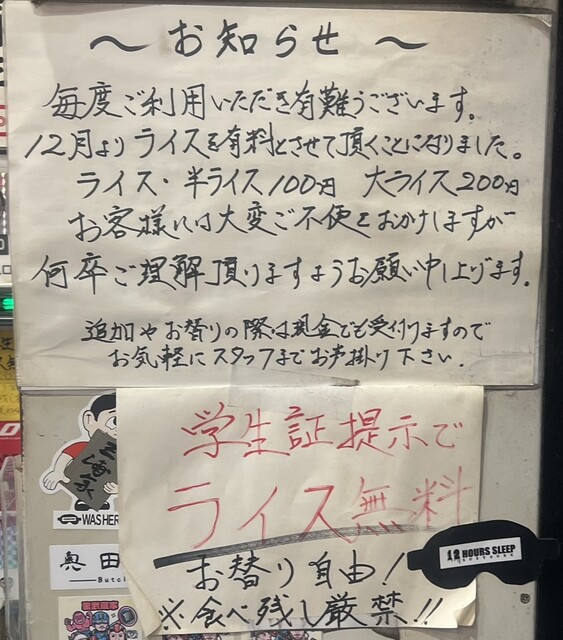 ～お知らせ～
毎度ご利用いただき有難うございます。
12月よりライスを有料とさせて頂くことになりました。
ライス・半ライス100円 大ライス200円
お客様には大変ご不便をおかけしますが
何卒ご理解頂りますようお願い申し上げます。
追加やお替りの際は現金でも受付けますので
お気軽にスタッフまでお声掛け下さい.
学生証提示で
ライス無料
お替り自由!
※食べ残し厳禁!!
WAS HER
奥田
Butc
12 HOURS SLEEP